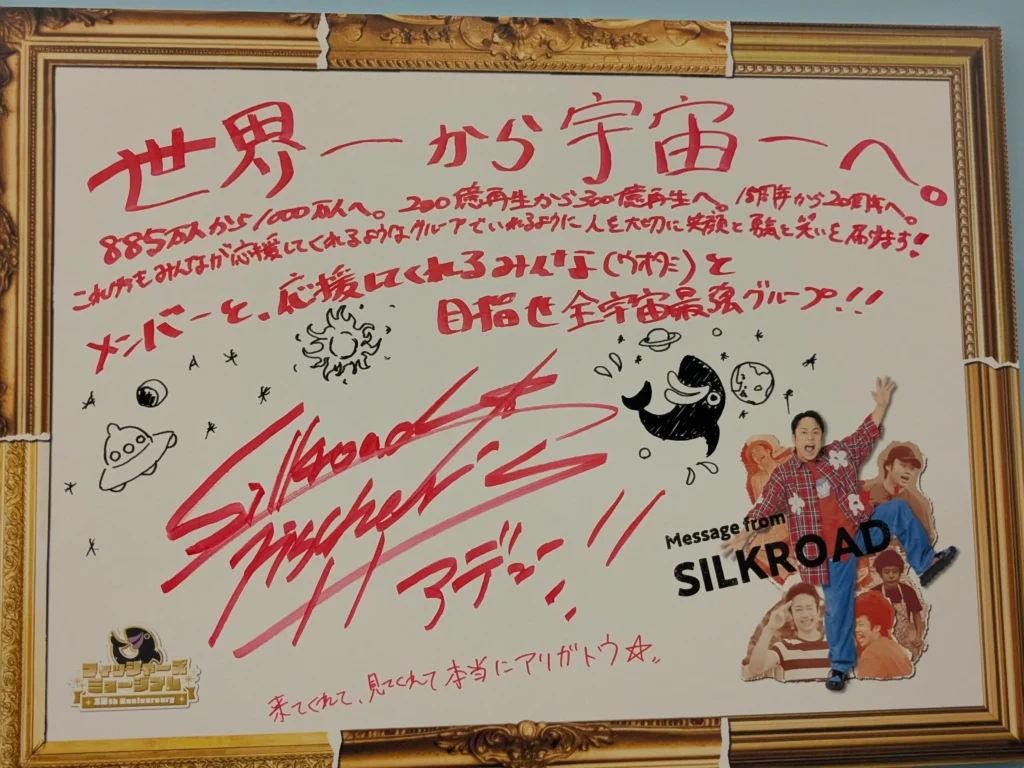 世界一から宇宙一へ。
885万人から1000万人へ。200億再生から300億再生へ。15周年から20周年へ。
これからもみんなが応援してくれるようなグループでいれるように人を大切に笑顔と 笑いを届けます!
メンバーと、応援してくれるみんな(ウオタミ)と
目指せ全宇宙最強グループ!!
Silkroad
Fischer's
アデュー!!
Message from
SILKROAD
フィッシャーズ
ミュージアム
15th Anniversary
来てくれて、見てくれて本当にアリガトウ☆